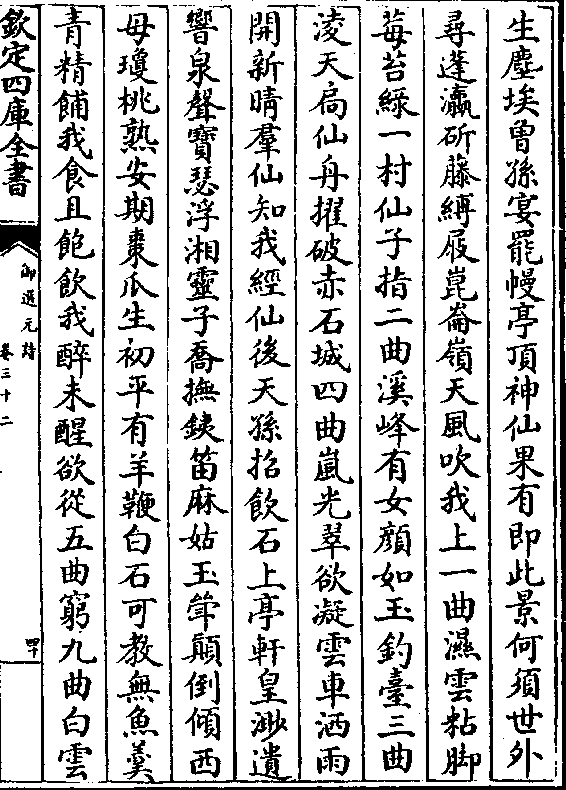 生塵埃曾孫宴罷幔亭頂神仙果有即此景何須世外
尋蓬瀛斫藤縛屐崑崙嶺天風吹我上一曲濕雲粘腳
莓苔綠一村仙子指二曲溪峰有女顏如玉釣臺三曲
凌天扃仙舟擢破赤石城四曲嵐光翠欲凝雲車洒雨
開新晴羣仙知我經仙後天孫招飲石上亭軒皇渺遺
響泉聲寶瑟浮湘靈子喬撫銕笛麻姑玉笙顛倒傾西
母瓊桃熟安期棗瓜生初平有羊鞭白石可教無魚羹
青精餔我食且飽飲我醉未醒欲從五曲窮九曲白雲
欽定四庫全書
御選元詩
卷三十二
四十